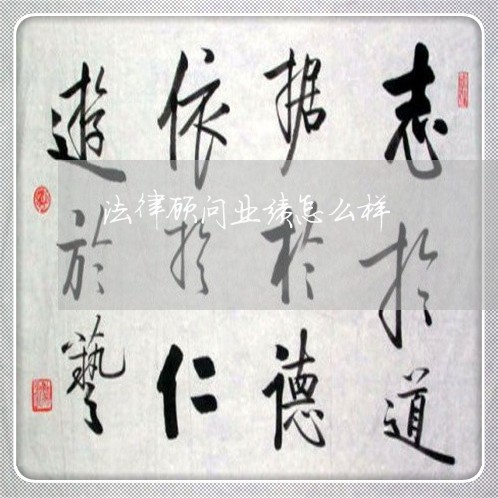 志於道
据於德
依於仁
遊於藝
法律顾问业绩怎么样